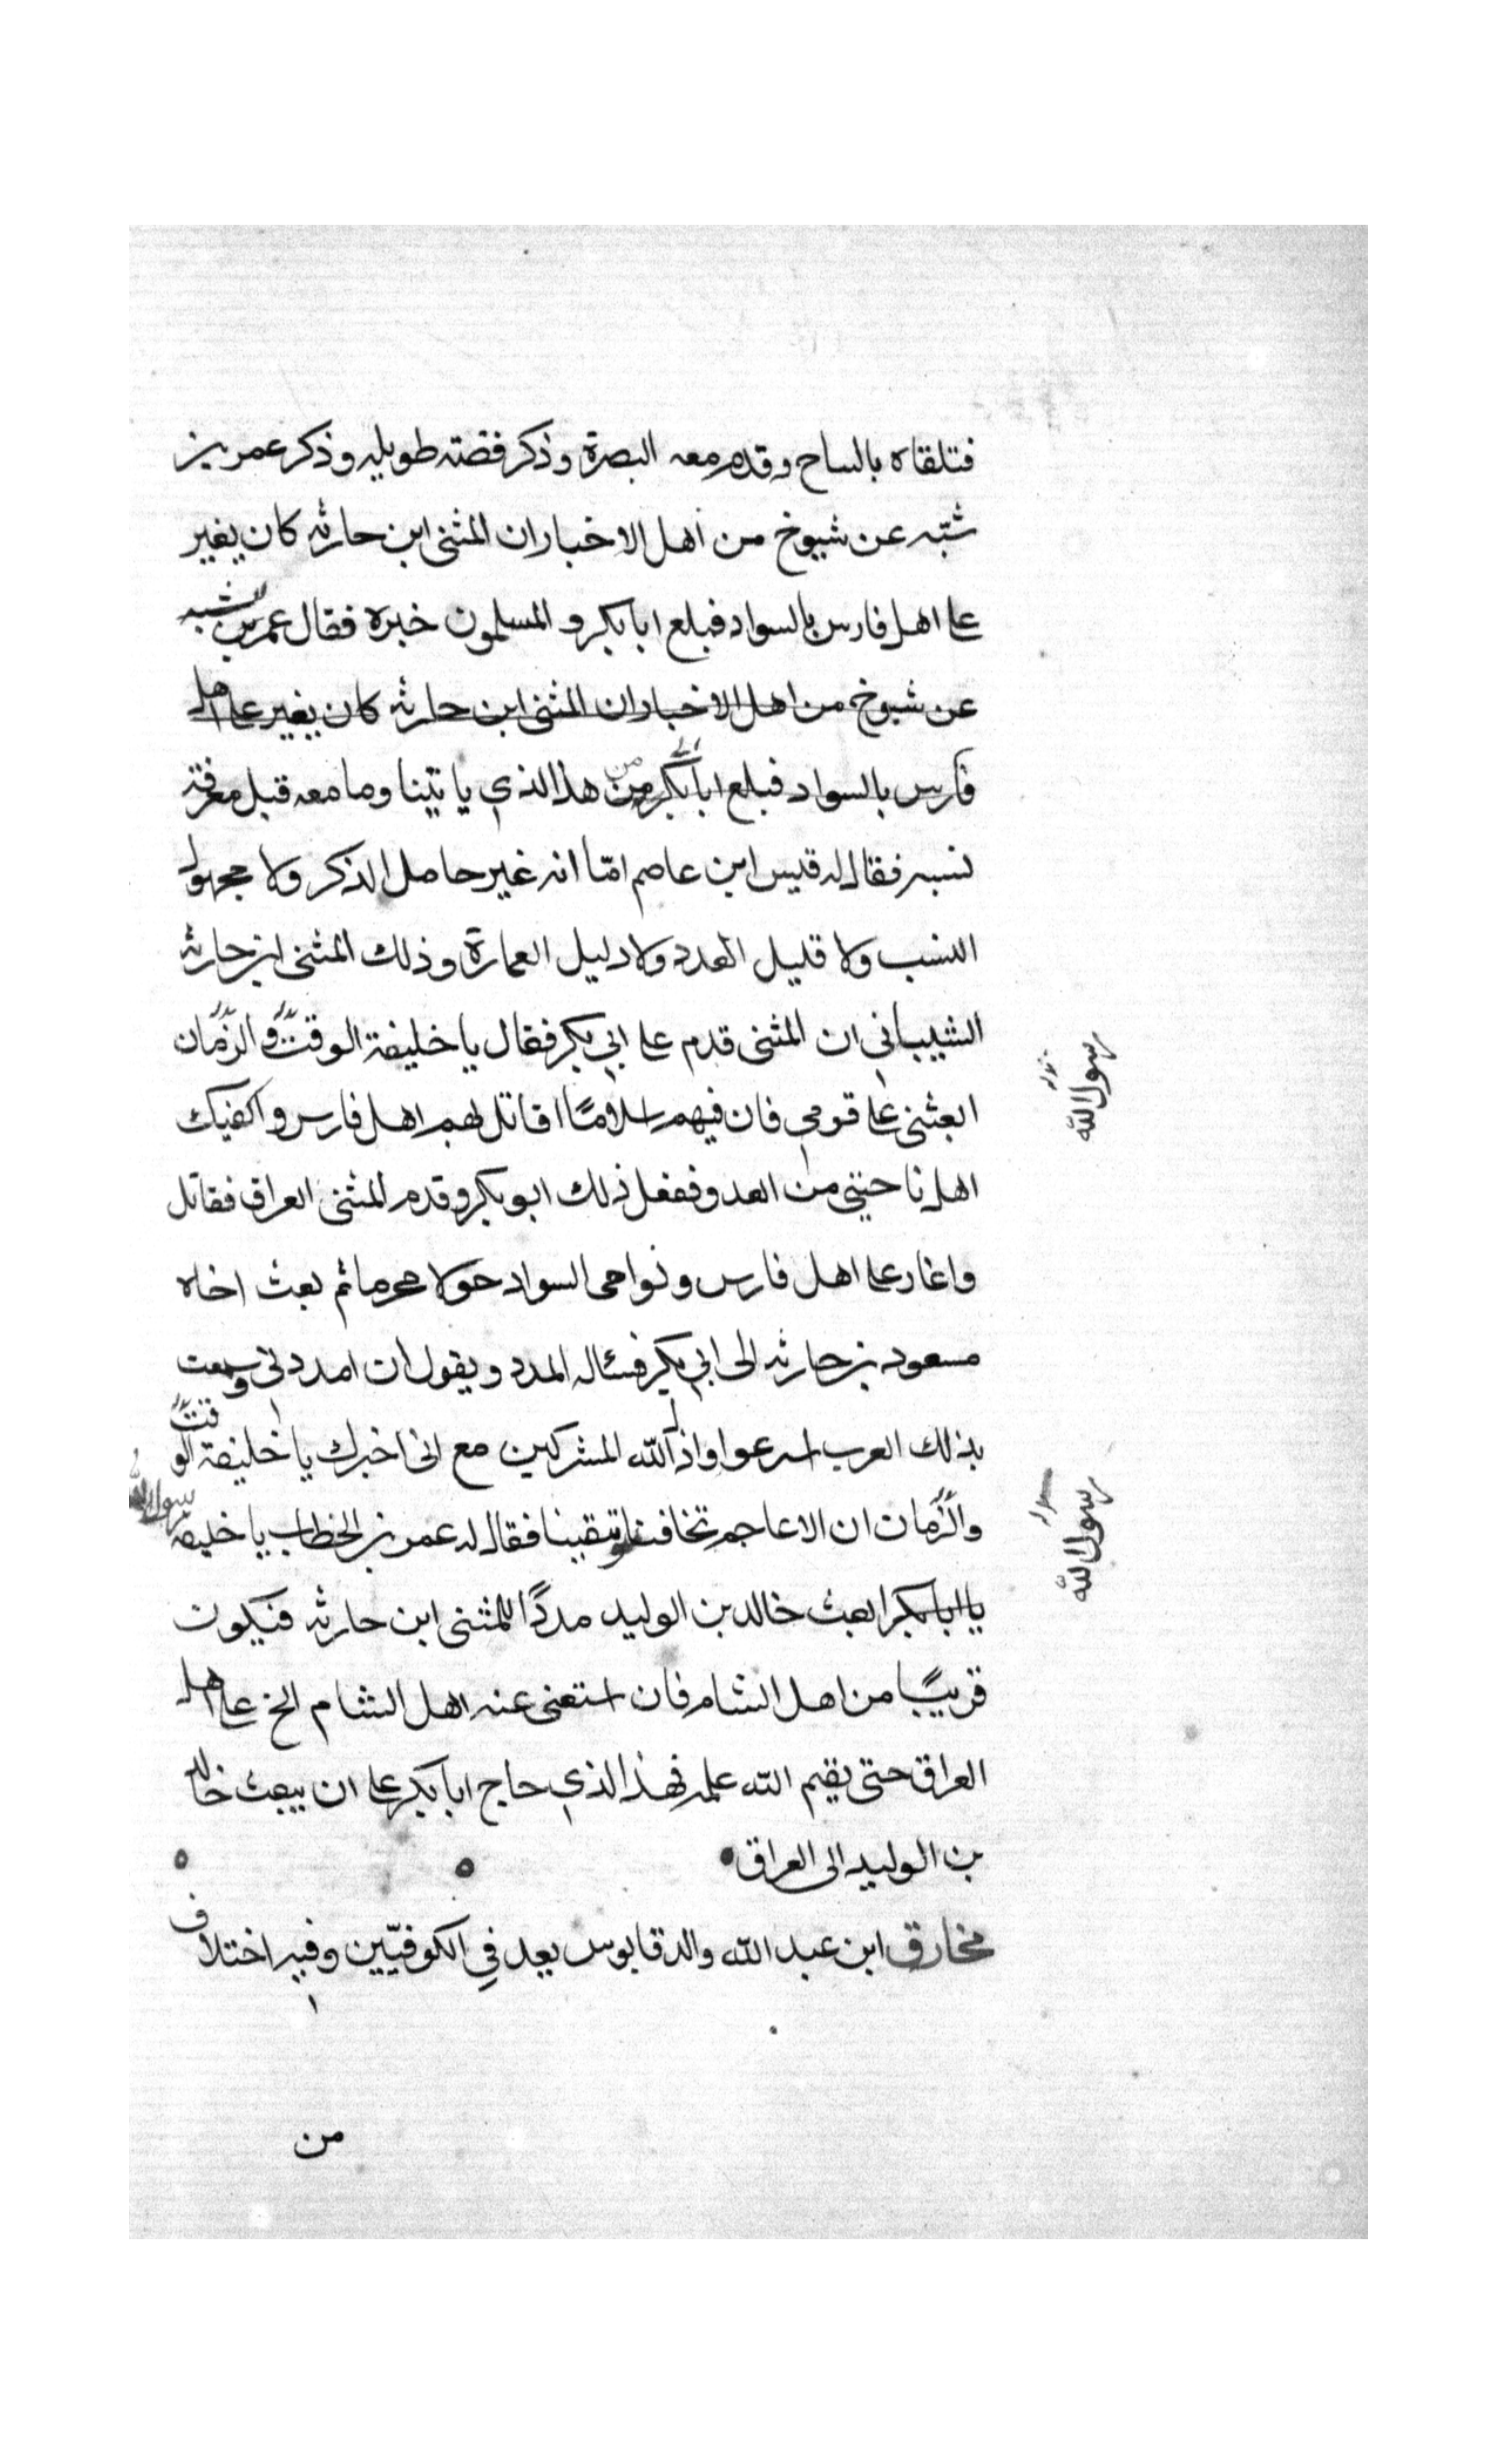 فتلقاه بالساح وقدم معه البصرة وذكر قصته طويله وذكر عمر بن
شبّه عن شيوخ من اهل الاخبار ان المثنى ابن حارثه كان يغير
على اهل فارس بالسواد فبلغ ابا بكر والمسلمون خبره فقال عمر بن شبه
عن شيوخ من اهل الاخبار ان المثنى ابن حارثه كان يغير على اهل
فارس بالسواد فبلغ ابا بكر من هذا الذي ياتينا وما معه قبل معرفة
نسبه فقال له قيس ابن عاصم امّا انه غير حامل الذكر ولا مجهول
النسب ولا قليل العدد ولا دليل العمارة وذلك المثنى ابن حارثه
الشيباني ان المثنى قدم على ابي بكر فقال يا خليفة الوقت والزمان
ابعثني على قومي فان فيهم اسلامًا اقاتل لهم اهل فارس واكفيك
اهل ناحيتي من العدو ففعل ذلك ابو بكر وقدم المثنى العراق فقاتل
واغار على اهل فارس ونواحى السواد حولا مجرما ثم بعث اخاه
مسعود بن حارثه الى ابي بكر فسئاله المدد ويقول ان امددتني وسمعت
بذلك العرب اسرعوا واذل الله المشركين مع اني اخبرك يا خليفة الوقت
والزمان ان الاعاجم تخافنا وتتقينا فقال له عمر بن الخطاب يا خليفة رسول الله
يا ابا بكر ابعث خالد بن الوليد مددًا للمثنى ابن حارثه فيكون
قريبًا من اهل الشام فان استغنى عنه اهل الشام الخ على اهل
العراق حتى يقيم الله علمه فهذا الذي حاج ابا بكر على ان يبعث خالد
بن الوليد الى العراق
مخارق ابن عبد الله والد قابوس يعد في الكوفيّين وفيه اختلاف
من
رسول الله
رسول الله